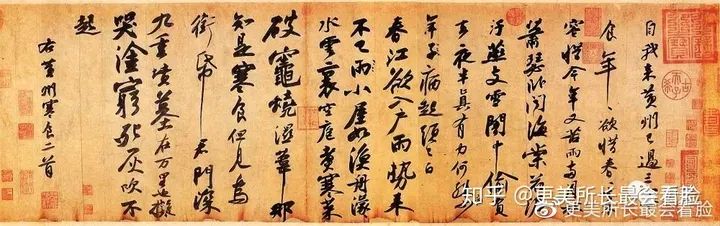 自我來黃州已過三
食年々欲惜春
容惜今年又苦雨兩
蕭瑟卧聞海棠花泥
汙燕支雪闇中偷負
去夜半真有力何殊
年子病起須已白
春江欲入戶雨勢來
不已雨小屋如漁舟濛
水雲裏空庖煮寒菜
破竈燒濕葦那
知是寒食但見烏
銜帋君門深
九重墳墓在万里也擬
哭塗窮死灰吹不
起
右黃州寒食二首
知乎 @更美所长最会看脸
@更美所长最会看脸